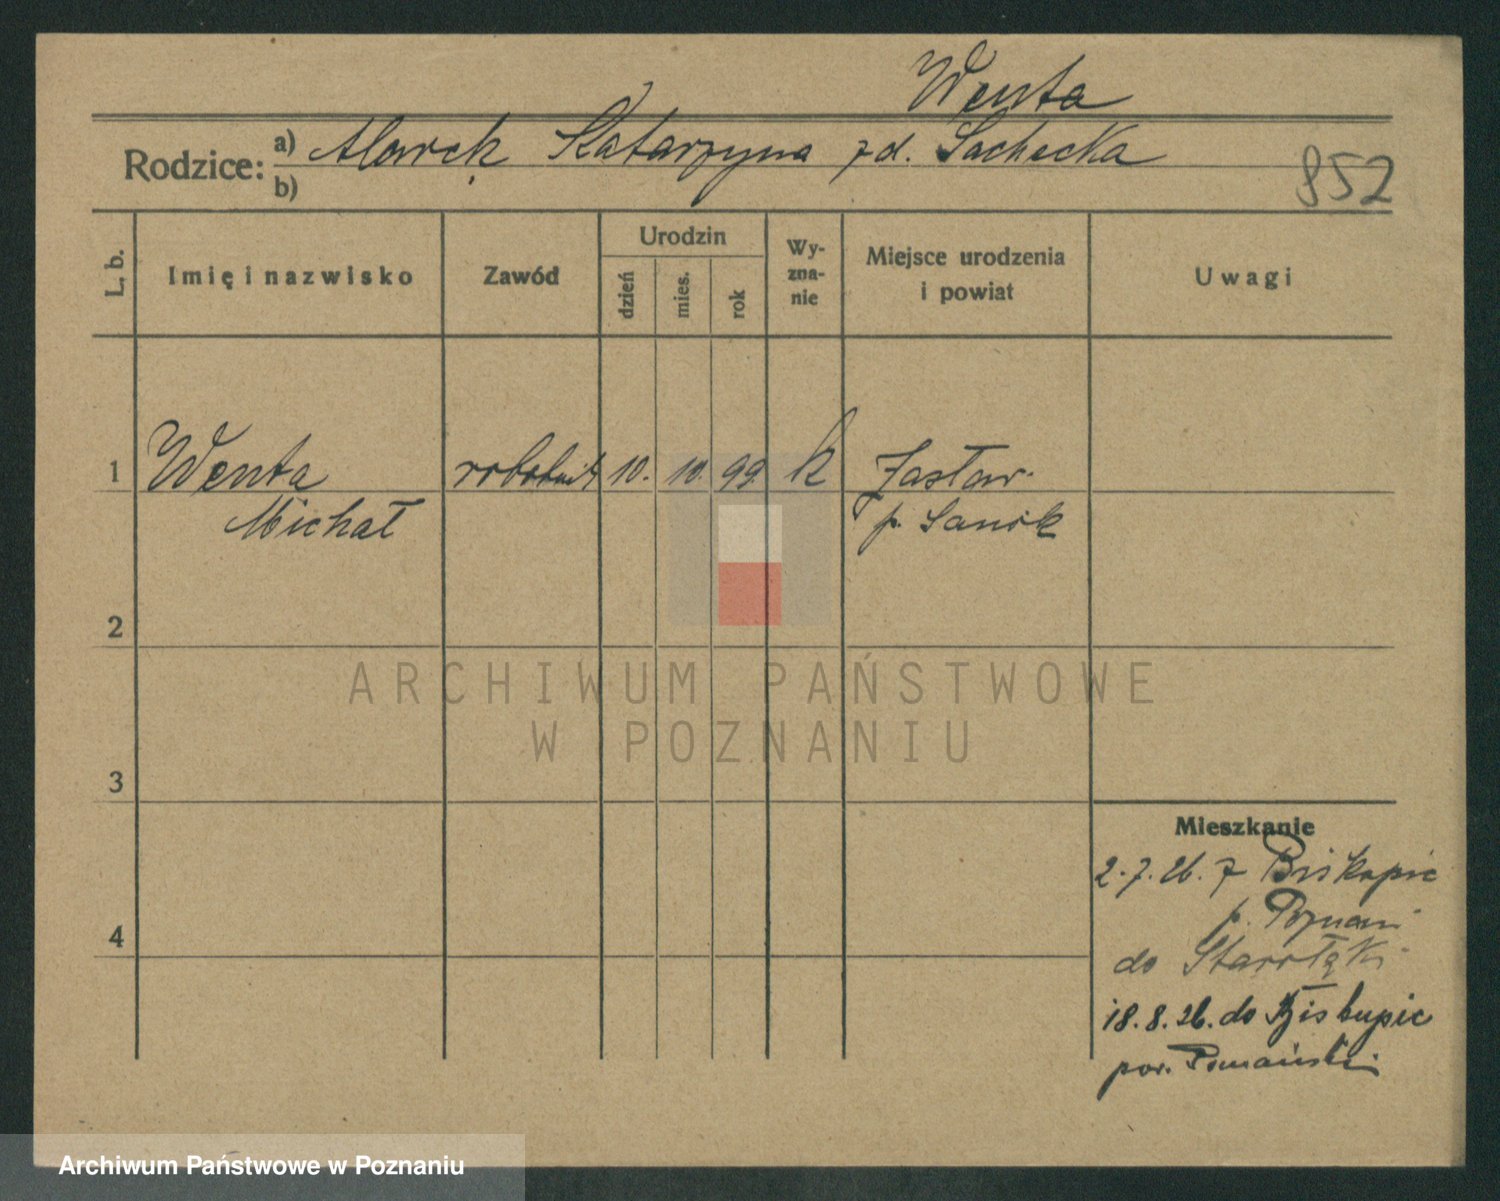 Wenta
Rodzice: a) Marek Katarzyna zd. Sachecka
b)
852
L. b.
Imię i nazwisko
Zawód
Urodzin
dzień
mies.
rok
Wy-
zna-
nie
Miejsce urodzenia
i powiat
Uwagi
1 Wenta robotnik 10. 10. 99. k Zasław.
Michał p. Sanok
2
3
4
Mieszkanie
2.7.26. z Biskupic
p. Poznań
do Starołęki
18.8.26. do Biskupic
pow. Poznański
ARCHIWUM PAŃSTWOWE
W POZNANIU
Archiwum Państwowe w Poznaniu